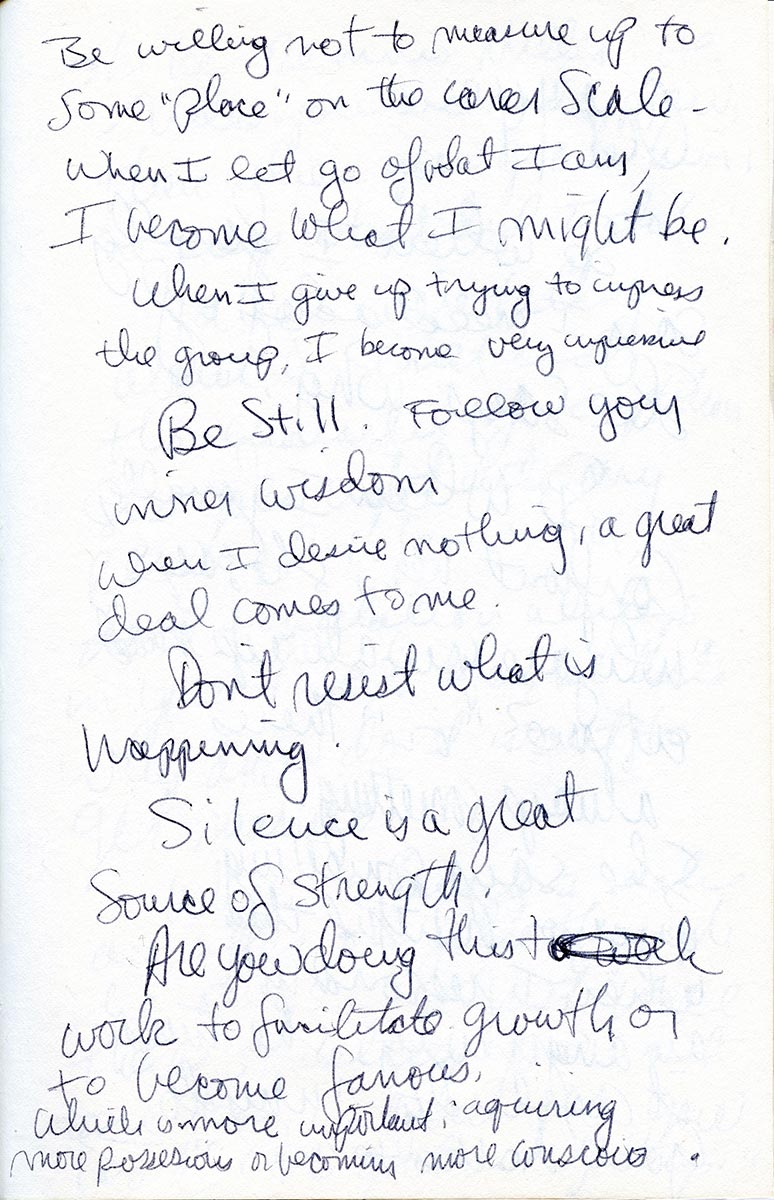 Be willing not to measure up to
some "place" on the career scale -
When I let go of what I am,
I become what I might be.
When I give up trying to impress
the group, I become very impressive
Be Still. Follow your
inner wisdom
when I desire nothing, a great
deal comes to me.
Don't resist what is
Happening.
Silence is a great
Source of strength.
Are you doing this to work
work to facilitate growth or
to become famous.
Which is more important; aquiring
more possesions or becoming more conscious.